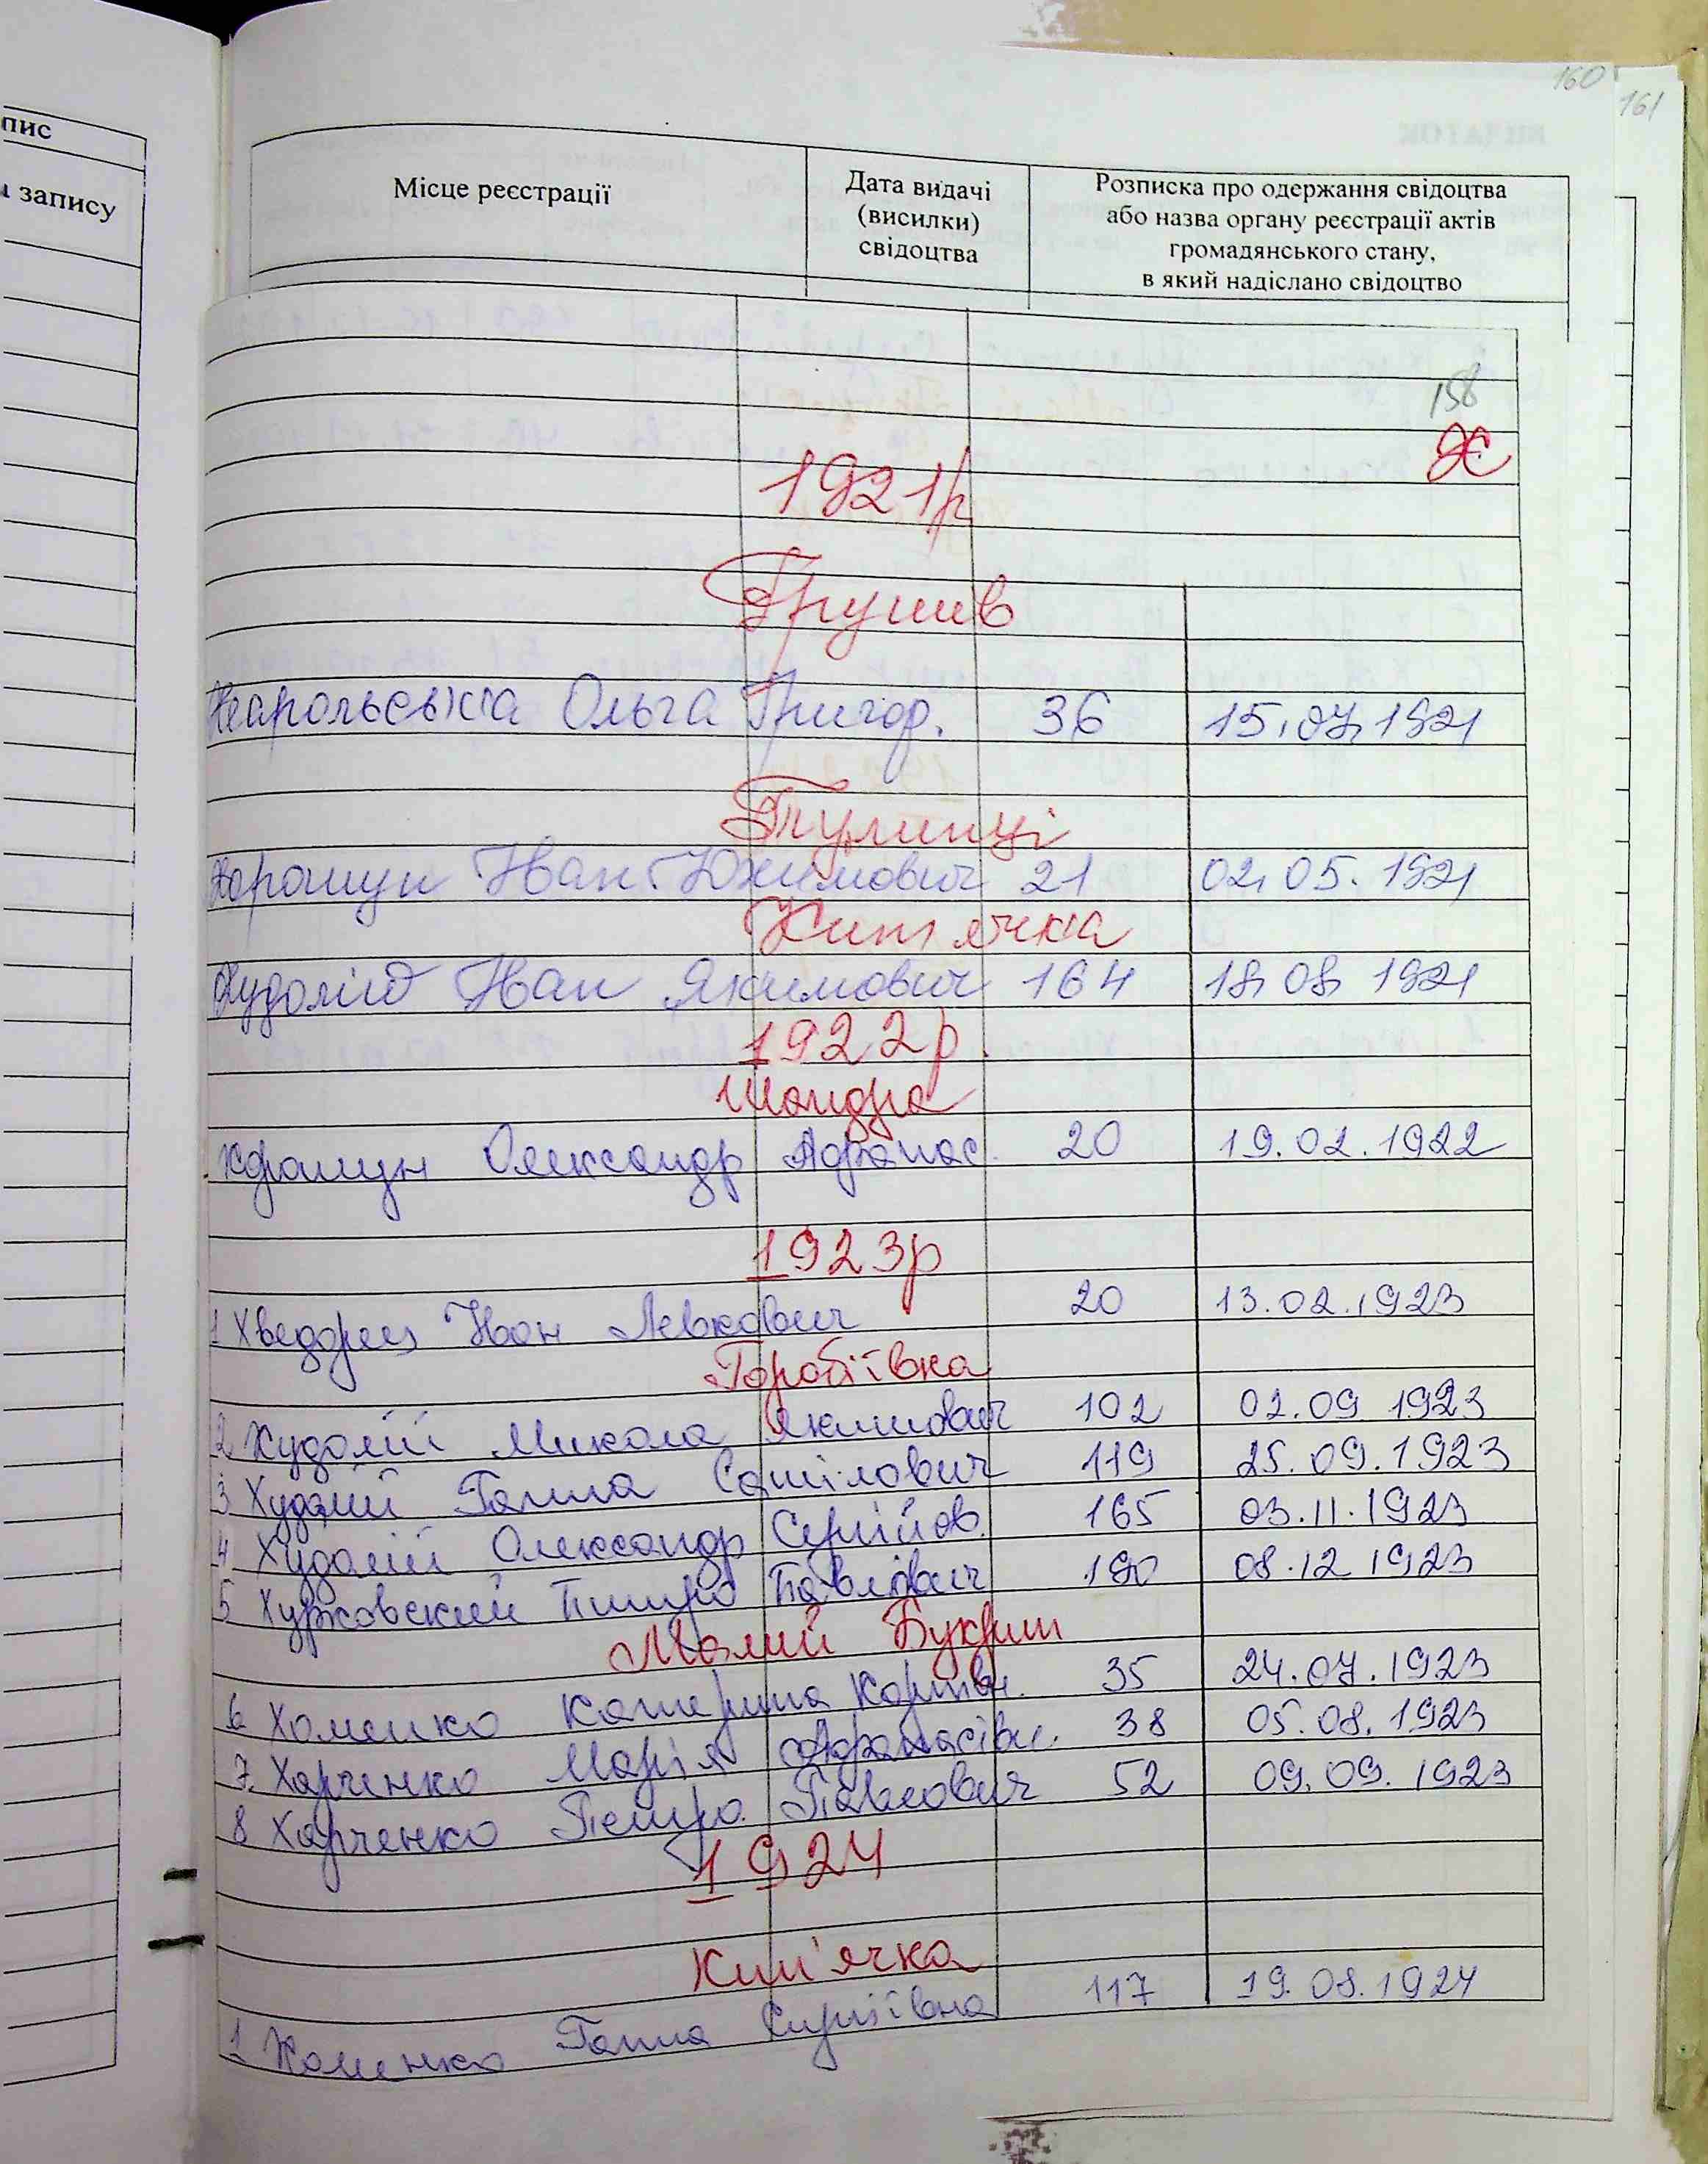 160
161
пис
запису
Місце реєстрації
Дата видачі
(висилки)
свідоцтва
Розписка про одержання свідоцтва
або назва органу реєстрації актів
громадянського стану,
в який надіслано свідоцтво
158
Х
1921р
Грушів
Ольга Григор. 36 15.07.1921
Тулинці
Хорошун Іван Юхимович 21 02.05.1921
Кип'ячка
Худолій Іван Якимович 164 18.08.1921
1922р.
Шандра
Хорошун Олександр Афанас. 20 19.02.1922
1923р
1 Хведорец Іван Левкович 20 13.02.1923
Горобіївка
2 Худолій Микола Якимович 102 02.09 1923
3 Худолій Ганна Самілович 119 25.09.1923
4 Худолій Олександр Сергійов. 165 03.11.1923
5 Павлович 190 08.12 1923
Малий Букрин
6 Хоменко Катерина 35 24.07.1923
7. Харченко Марія Афанасівн. 38 05.08.1923
8 Харченко Петро Павлович 52 09.09.1923
1924
Кип'ячка
1 Хоменко Ганна Сергіївна 117 19.08.1924